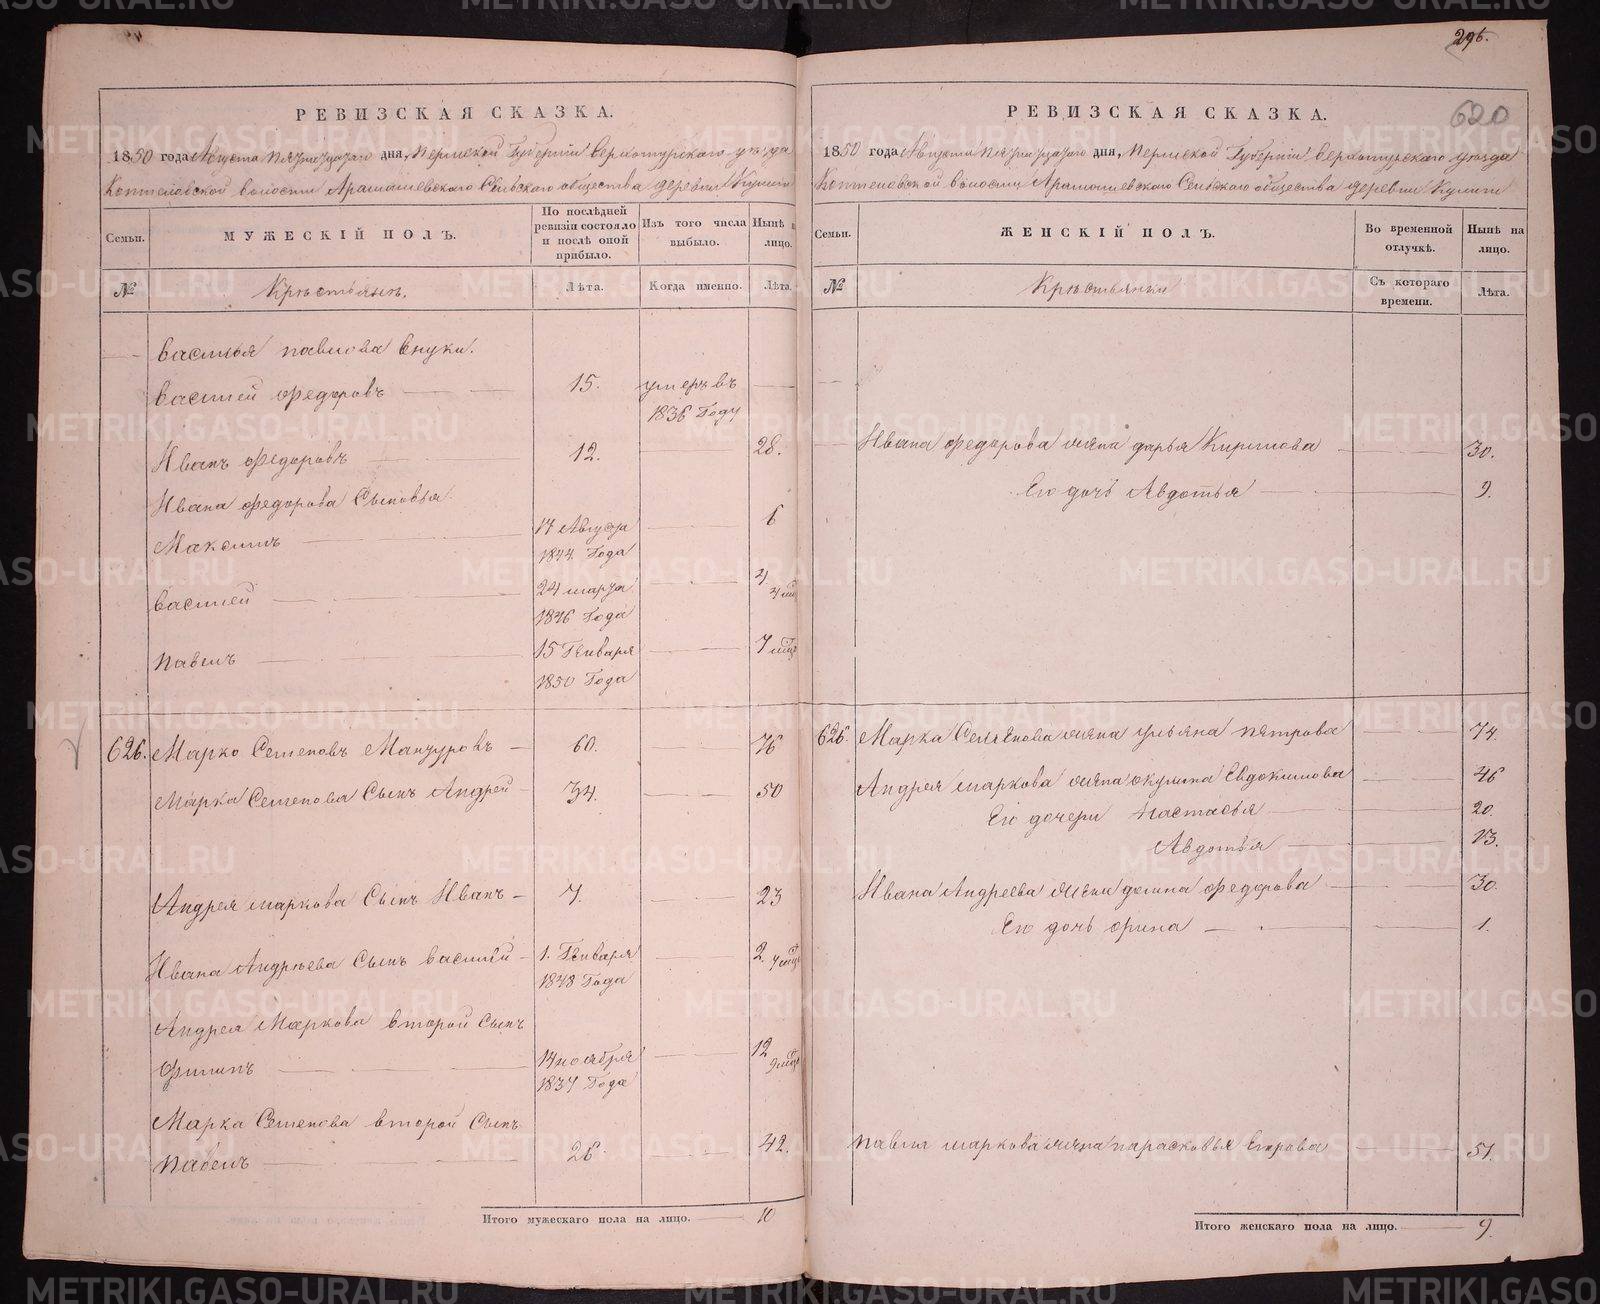 296.
620
РЕВИЗСКАЯ СКАЗКА.
1850 года Августа пятнадцатаго дня, Пермской Губерніи Верхотурскаго уезда
Коптеловской волости Арамашевскаго Сельскаго общества деревни
Семьи. МУЖЕСКІЙ ПОЛЪ. По послѣдней ревизіи состояло и послѣ оной прибыло. Изъ того числа выбыло. Нынѣ на лицо.
№ Крестьянъ. Лѣта. Когда именно. Лѣта.
Василья павлова внуки.
Василей Федоровъ 15. умеръ въ 1836 Году
Иванъ Федоровъ 12. 28.
Ивана Федорова Сыновья
Максимъ 17 Августа 1844 Года 6
Василей 24 марта 1846 Года 4 4 мца
Павелъ 15 Генваря 1850 Года 7 мцъ
626. Марко Семеновъ Манзуровъ 60. 76
Марка Семенова Сынъ Андрей 34. 50
Андрея маркова Сынъ Иванъ 7. 23
Ивана Андреева Сынъ Василей 1. Генваря 1848 Года 2. 7 мцъ
Андрея Маркова второй Сынъ
Филипъ 14 ноября 1837 Года 12 9 мцъ
Марка Семенова второй Сынъ
Павелъ 26 42.
Итого мужескаго пола на лицо. 10
РЕВИЗСКАЯ СКАЗКА.
1850 года Августа пятнадцатаго дня, Пермской Губерніи Верхотурскаго уезда
Коптеловской волости Арамашевскаго Сельскаго общества деревни
Семьи. ЖЕНСКІЙ ПОЛЪ. Во временной отлучкѣ. Нынѣ на лицо.
№ Крестьянки Съ котораго времени. Лѣта.
Ивана Федорова жена дарья Кирилова 30.
Его дочь Авдотья 9.
626. Марка Семенова жена ульяна петрова 74.
Андрея маркова жена окулина Евдокимова 46
Его дочери Настасья 20.
Авдотья 13.
Ивана Андреева жена домна Федорова 30.
Его дочь орина 1.
Павла маркова жена парасковья Егорова 51.
Итого женскаго пола на лицо. 9.
METRIKI.GASO-URAL.RU